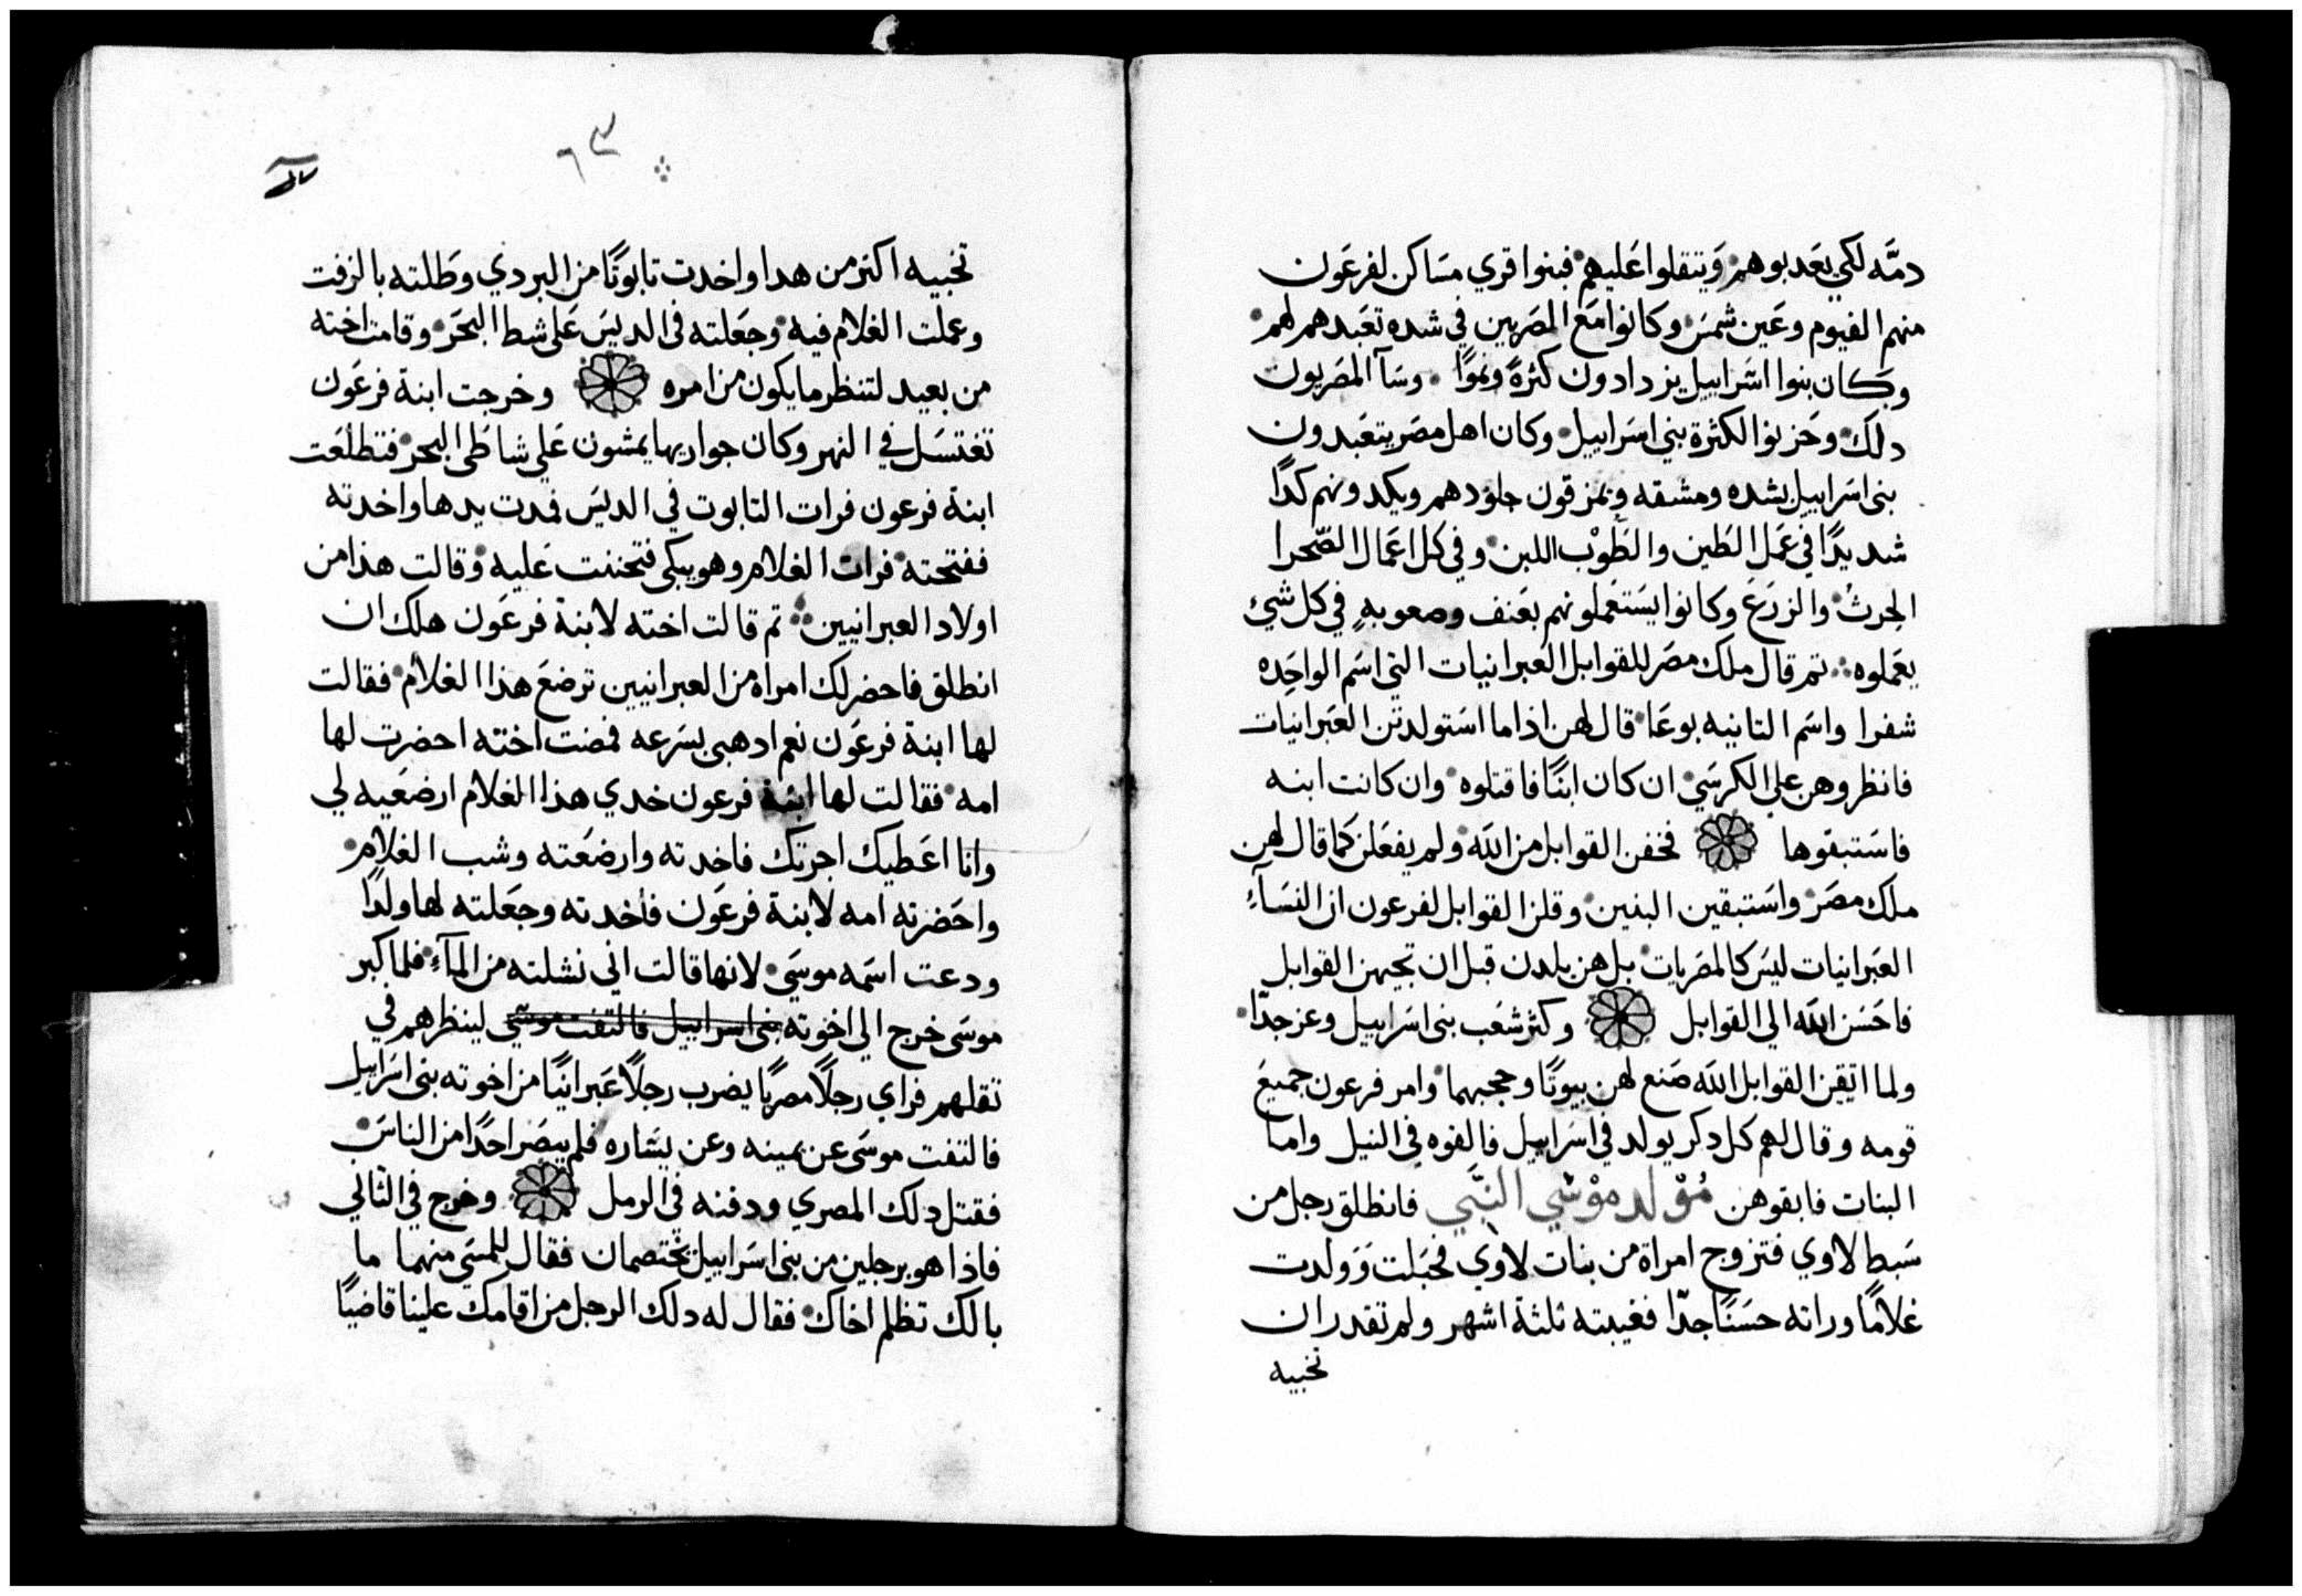 دمَّه لكي يعَدبوهم وَيتقلوا عَليهم فبنوا قري مسَاكن لفرعَون
منهم الفيوم وعَين شمسَ وكانوا مَع المصَريين في شده تعَبدهم لهم
وكان بنوا اسَراييل يزدادون كثرةً ونموًا وسَآ المصَريون
دلك وحَزنوا لكثرة بني اسَراييل وكان اهل مصَر يتعَبدون
بني اسَراييل بشده ومشقه ويمزقون جلودهم ويكدونهم كدًا
شديدًا في عَمَل الطَين والطَوْب اللبن وفي كل اعَمال الصّحرا
الحِرثُ والزرَعَ وكانوا يسَتعَملونهم بعَنف وصعوبهٍ في كل شيْ
يعَملوه تم قال ملك مصَر للقوابل العَبرانيات التي اسَم الواحِده
شفرا واسَم التانيه بوعَا قال لهن اذا ما اسَتولدتن العَبرانيات
فانظروهن علي الكرسَي ان كان ابنًا فاقتلوه وان كانت ابنه
فاسَتبقوها فخفن القوابل من الله ولم يفعَلن كما قال لهن
ملك مصَر واسَتبقين البنين وقلن القوابل لفرعون ان النسَآءِ
العَبرانيات ليسَ كالمصَريات بل هن يلدن قبل ان تجيهن القوابل
فاحَسَن الله الي القوابل وكثر شعَب بني اسَراييل وعز جدّا
ولما اتقين القوابل الله صَنع لهن بيوتًا وحجبهما وامر فرعون جميعَ
قومه وقال لهم كل دكر يولد في اسَراييل فالقوه في النيل واما
البنات فابقوهن مُوْلد موْسَي النبَّي فانطلق رجل من
سَبط لاوي فتزوج امراة من بنات لاوي فحَبلت وَولدت
غلامًا وراته حسَنًا جدّا فغيبته ثلثة اشهر ولم تقدر ان
تخبيه
٦٣
تخبيه اكثر من هدا واخدت تابوتًا من البردي وطَلته بالزفت
وعملت الغلام فيه وجعَلته في الديسَ عَلي شط البحَر وقامت اخته
من بعيد لتنظر ما يكون من امره وخرجت ابنة فرعَون
تغتسَل في النهر وكان جواريها يمشون عَلي شاطَي البحر فتطلعَت
ابنة فرعون فرات التابوت في الديسَ فمدت يدها واخدته
ففتحته فرات الغلام وهو يبكي فتحننت عَليه وقالت هذا من
اولاد العبرانيين تم قالت اخته لابنة فرعَون هل لك ان
انطلق فاحضر لك امراة من العبرانيين ترضعَ هذا الغلام فقالت
لها ابنة فرعَون نعم ادهبي بسَرعه فمضت اخته احضرت لها
امه فقالت لها ابنة فرعون خدي هذا الغلام ارضعَيه لي
وانا اعَطيك اجرتك فاخدته وارضعَته وشب الغلام
واحَضرته امه لابنة فرعَون فأخدته وجعَلته لها ولدًا
ودعت اسَمه موسَي لانها قالت اني نشلته من المآءِ فلما كبر
موسَي خرج الي اخوته بني اسراييل فالتفت موسَي لينظرهم في
تقلهم فراي رجلًا مصريًا يضرب رجلًا عَبرانيًا من اخوته بني اسَراييل
فالتفت موسَي عن يمينه وعن يسَاره فلم يبصَر احَدًا من الناسَ
فقتل دلك المصري ودفنه في الرمل وخرج في الثاني
فاذا هو برجلين من بني اسَراييل يختصمان فقال للمسَي منهما ما
بالك تظلم اخاك فقال له دلك الرجل من اقامك علينا قاضيًا